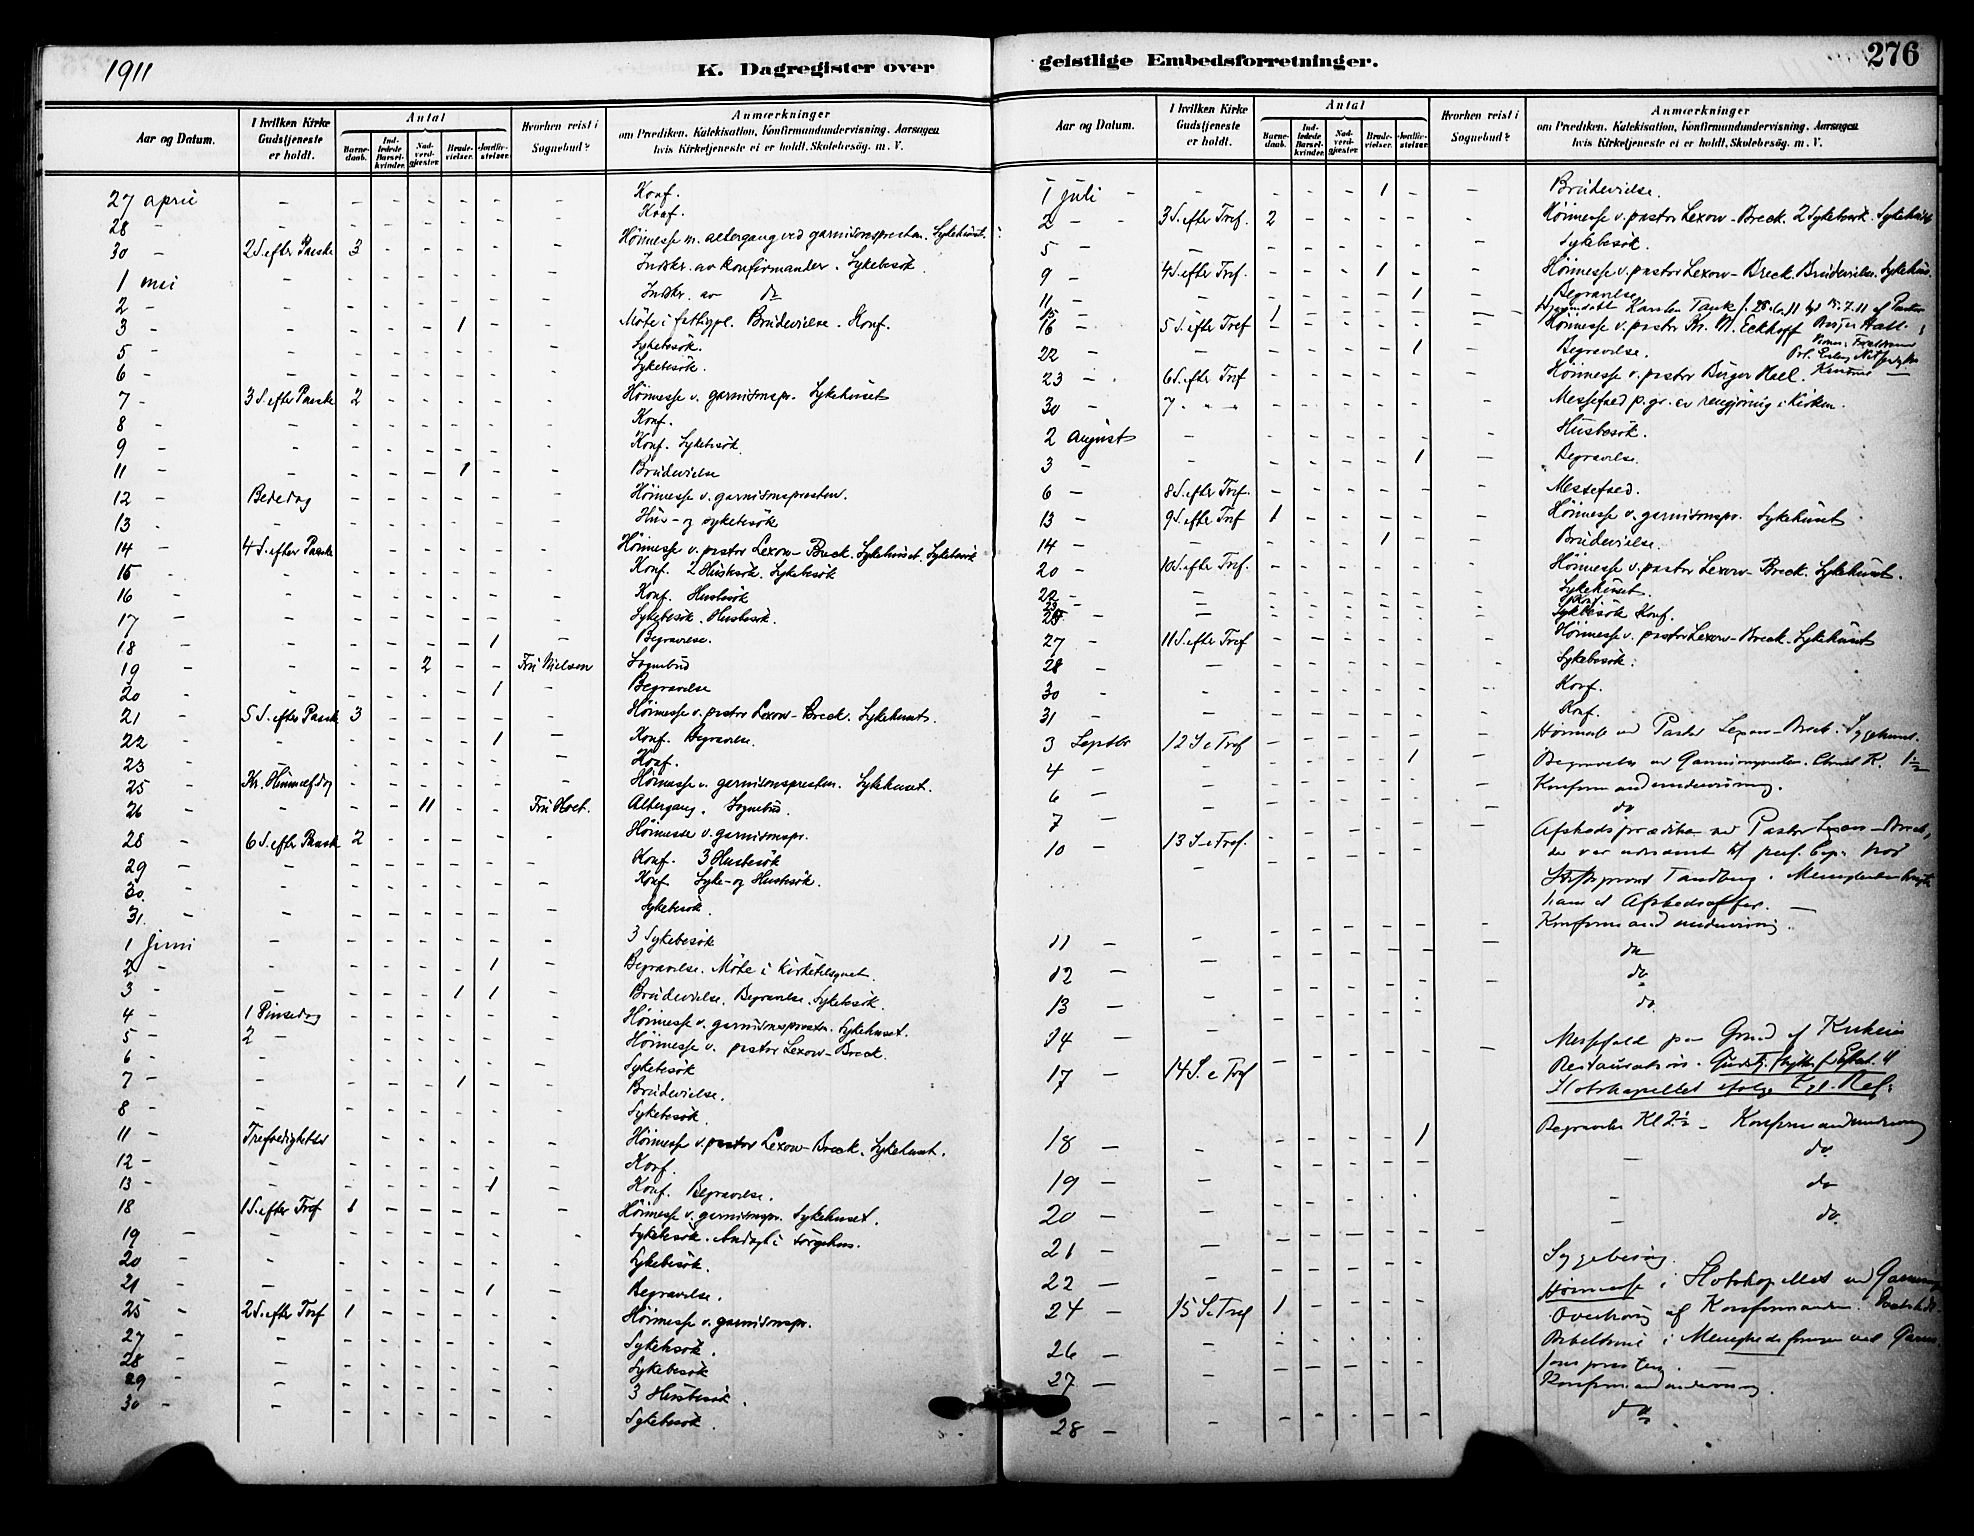 1911
K. Dagregister over
Aar og Datum. I hvilken Kirke Gudstjeneste er holdt. Antal Barnedaab. Indledede Barselkvinder. Nadverdgjæster. Brudevielser. Jordfæstelser. Hvorhen reist i Sognebud? Anmærkninger om Prædiken, Katekisation, Konfirmandundervisning, Aarsagen hvis Kirketjeneste ei er holdt, Skolebesøg. m. V.
27 april - - - - - - - Konf.
28 - - - - - - - Konf.
30 - 2 S. efter Paaske 3 - - - - - Höimesse m. altergang ved garnisonspresten. Sykehuset.
1 mai - - - - - - - Indskr. av konfirmander. Sykebesök
2 - - - - - - - Indskr. av do
3 - - - - - 1 - - Möte i fattigpl. Brudevielse. Konf.
5 - - - - - - - Sykebesök.
6 - - - - - - - Sykebesök.
7 - 3 S. efter Paaske 2 - - - - - Höimesse v. garnisonspr. Sykehuset
8 - - - - - - - Konf.
9 - - - - - - - Konf. Sykebesök
11 - - - - - 1 - - Brudevielse
12 - Bededag - - - - - - Höimesse v. garnisonspresten.
13 - - - - - - - Hus- og sykebesök
14 - 4 S. efter Paaske - - - - - - Höimesse v. pastor Lexow-Breck. Sykehuset. Sykebesök
15 - - - - - - - Konf. 2 Husbesök. Sykebesök
16 - - - - - - - Konf. Husbesök
17 - - - - - - - Sykebesök. Husbesök.
18 - - - - - - 1 - Begravelse.
19 - - - - 2 - - Fru Nielsen Sognebud
20 - - - - - - 1 - Begravelse
21 - 5 S. efter Paask 3 - - - - - Höimesse v. pastor Lexow-Breck. Sykehuset.
22 - - - - - - 1 - Konf. Begravelse.
23 - - - - - - - Konf.
25 - Kr. Himmelfdag - - - - - - Höimesse v. garnisonspresten. Sykehuset.
26 - - - - 11 - - Fru Hoet. Altergang. Sognebud.
28 - 6 S. efter Paask 2 - - - - - Höimesse v. garnisonspr.
29 - - - - - - - Konf. 3 Husbesök
30. - - - - - - - Konf. Syke- og Husbesök.
31. - - - - - - - Sykebesök.
1 Juni - - - - - - - 3 Sykebesök
2 - - - - - - 1 - Begravelse. Möte i Kirketilsynet.
3 - - - - - 1 1 - Brudevielse. Begravelse. Sykebesök.
4 - 1 Pinsedag - - - - - - Höimesse v. garnisonsprestn. Sykehuset.
5 - 2 - - - - - - Höimesse v. pastor Lexow-Breck.
6 - - - - - - - Sykebesök
7 - - - - - 1 - - Brudevielse.
8 - - - - - - - Sykebesök
11 - Trefoldighetssr - - - - - - Höimesse v. pastor Lexow-Breck. Sykehuset.
12 - - - - - - - Konf.
13 - - - - - - 1 - Konf. Begravelse.
18 1 S. efter Tref 1 - - - - - Höimesse v. garnisonspr. Sykehuset.
19 - - - - - - - Sykebesök. Andagt i sörgehus.
20 - - - - - - - Sykebesök.
21 - - - - - - 1 - Begravelse.
25 - 2 S. efter Tref 1 - - - - - Höimesse v. garnisonspr.
27 - - - - - - - Sykebesök.
28 - - - - - - - Sykebesök
29 - - - - - - - 3 Husbesök.
30 - - - - - - - Sykebesök.
geistlige Embedsforretninger.
276
Aar og Datum. I hvilken Kirke Gudstjeneste er holdt. Antal Barnedaab. Indledede Barselkvinder. Nadverdgjæster. Brudevielser. Jordfæstelser. Hvorhen reist i Sognebud? Anmærkninger om Prædiken, Katekisation, Konfirmandundervisning, Aarsagen hvis Kirketjeneste ei er holdt, Skolebesøg. m. V.
1 juli - - - - - 1 - - Brudevielse.
2 - - 3 S. efter Tref. 2 - - - - - Höimesse v. pastor Lexow-Breck. 2 Sykebesök. Sykehuset
5 - - - - - - - Sykebesök.
9 - 4 S. efter Tref. - - - 1 - - Höimesse v. pastor Lexow-Breck. Brudevielse. Sykehus.
11 - - - - - - 1 - Begravelse
15 - 1 - - - - - Hjemmedøbt Karsten Tank f. 28. 11 15.7.11 af Pastor
16 5 S. efter Tref - - - - - - Höimesse v. pastor Eckhoff Birger Hall.
22 - - - - - - 1 - Begravelse.
23 - 6 S. efter Tref - - - - - - Höimesse v. pastor Birger Hall.
30 - 7 - - - - - - - - Messefald p. gr. av rengjöring i Kirken.
2 august - - - - - - - Husbesök.
3 - - - - - - 1 - Begravelse.
6 - 8 S. efter Tref. - - - - - - Messefald.
13 - 9 S. efter Tref 1 - - - - - Höimesse v. garnisonspr. Sykehuset
14 - - - - - 1 - - Brudevielse.
20 - 10 S. efter Tref. - - - - - - Höimesse v. pastor Lexow-Breck. Sykehuset.
22 - - - - - - - Sykehuset.
23 - - - - - - - Konf
25 - - - - - - - Sykebesök Konf.
27 - 11 S. efter Tref - - - - - - Höimesse v. pastor Lexow-Breck. Sykehuset
28 - - - - - - - Sykebesök.
30 - - - - - - - Konf.
31 - - - - - - - Konf.
3 Septbr 12 S e Tref - - - - - - Höimesse ved Pastor Lexow-Breck. Sygehuset.
4 - - - - - - 1 - Begravelse av Garnisonspresten. K.
6 - - - - - - - Konfirmandundervisning.
7 - - - - - - - do
10 - 13 S e Tref. - - - - - - Afskedsprædiken ved Pastor Lexow-Breck,
der var udnævnt til pers. Cap. hos
Stiftsprovst Tandberg. Menigheden
ham et Afskedsoffer. -
11 - - - - - - - Konfirmandundervisning.
12 - - - - - - - do
13 - - - - - - - do
14 - - - - - - - do
17 - 14 S. e Tref Messefald paa Grund af Kirkens
Restauration. Gudstj.
Slotskapellet
18 - - - - - - 1 - Begravelse Kl 2½ - Konfirmandundervisning
19 - - - - - - - do
20 - - - - - - - do
21 - - - - - - - do
22 - - - - - - - Sygebesøg
24 - 15 S. e Tref 1 - - - - - Høimesse i Slotskapellet ved Garnisonspr
Overhøring af Konfirmanden.
26 - - - - - - - Bibeltime i Menighedsforeningen ved Garni-
sonspresten.
27 - - - - - - - Konfirmandundervisning.
28 - - - - - - - do